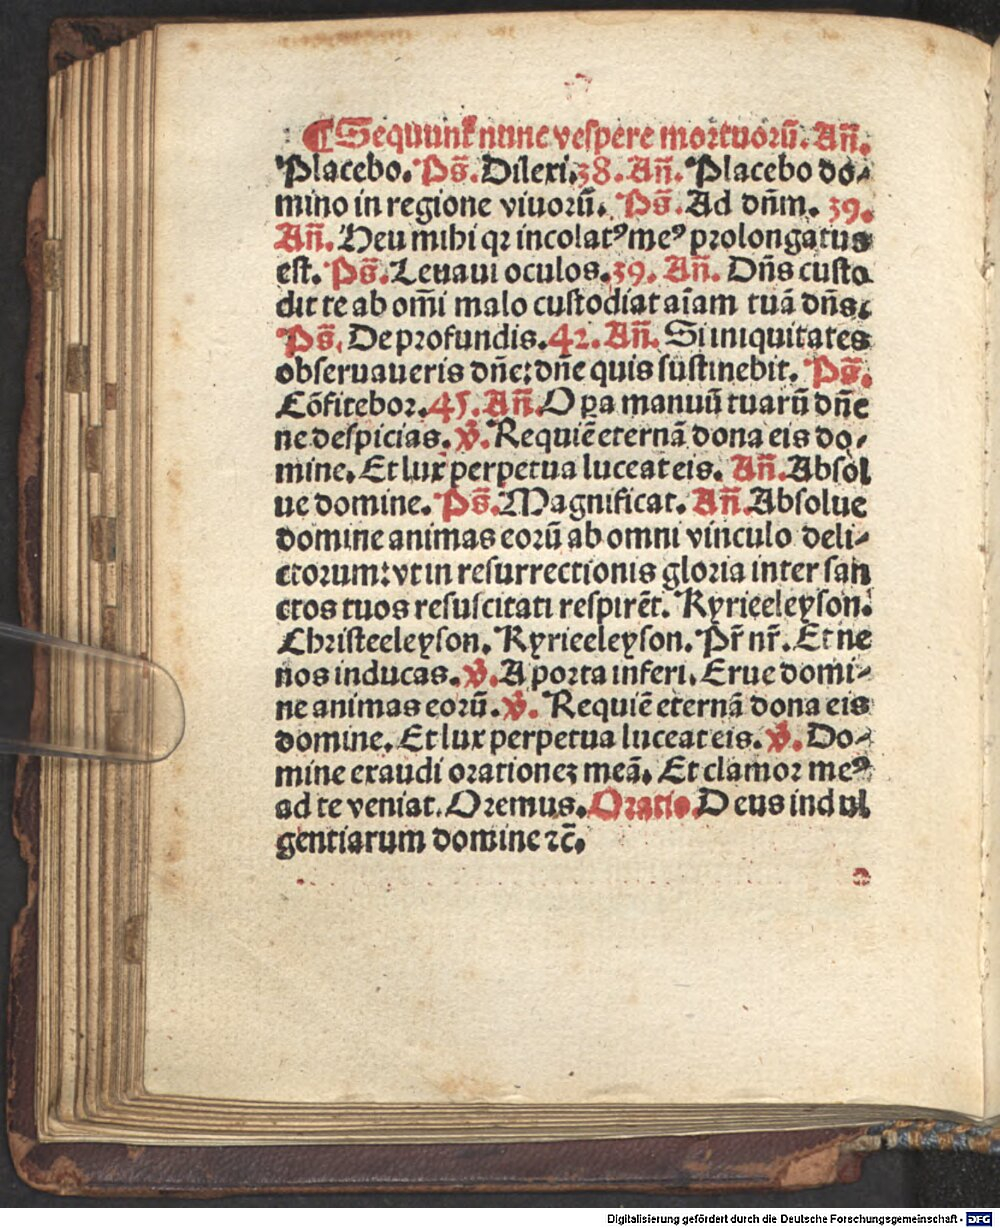 ¶ Sequunt᷑ nunc vespere mortuorū. Añ.
Placebo. Ps̄. Dilexi. 38. Añ. Placebo do-
mino in regione viuorū. Ps̄. Ad dn̄m. 39.
Añ. Heu mihi qꝛ incolatꝰ meꝰ prolongatus
est. Ps̄. Leuaui oculos. 39. Añ. Dn̄s custo
dit te ab om̄i malo custodiat aīam tuā dn̄s.
Ps̄. De profundis. 42. Añ. Si iniquitates
obseruaueris dn̄e: dn̄e quis sustinebit. Ps̄.
Cōfitebor. 45. Añ. Opꝑa manuū tuarū dn̄e
ne despicias. ℣. Requiē eternā dona eis do-
mine. Et lux perpetua luceat eis. Añ. Absol
ue domine. Ps̄. Magnificat. Añ. Absolue
domine animas eorū ab omni vinculo deli-
ctorum: vt in resurrectionis gloria inter san
ctos tuos resuscitati respirēt. Kyrieeleyson.
Christeeleyson. Kyrieeleyson. Pr̄ nr̄. Et ne
nos inducas. ℣. A porta inferi. Erue domi-
ne animas eorū. ℣. Requiē eternā dona eis
domine. Et lux perpetua luceat eis. ℣. Do-
mine exaudi orationeꝫ meā. Et clamor meꝰ
ad te veniat. Oremus. Oratio. Deus indul
gentiarum domine ⁊c̄.
Digitalisierung gefördert durch die Deutsche Forschungsgemeinschaft - DFG